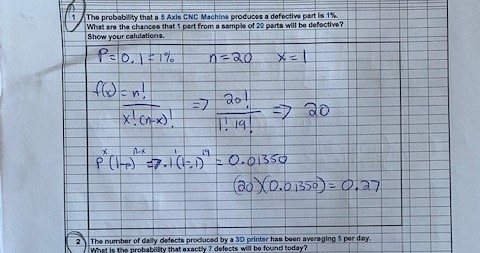 1 The probability that a 5 Axis CNC Machine produces a defective part is 1%.
What are the chances that 1 part from a sample of 20 parts will be defective?
Show your calulations.
P = 0.1 = 1% n = 20 x = 1
f(x) = n! / x!(n-x)! => 20! / 1! 19! => 20
P^x (1-p)^n-x => .1^1 (1-.1)^19 = 0.01350
(20)(0.01350) = 0.27
2 The number of daily defects produced by a 3D printer has been averaging 5 per day.
What is the probability that exactly 7 defects will be found today?